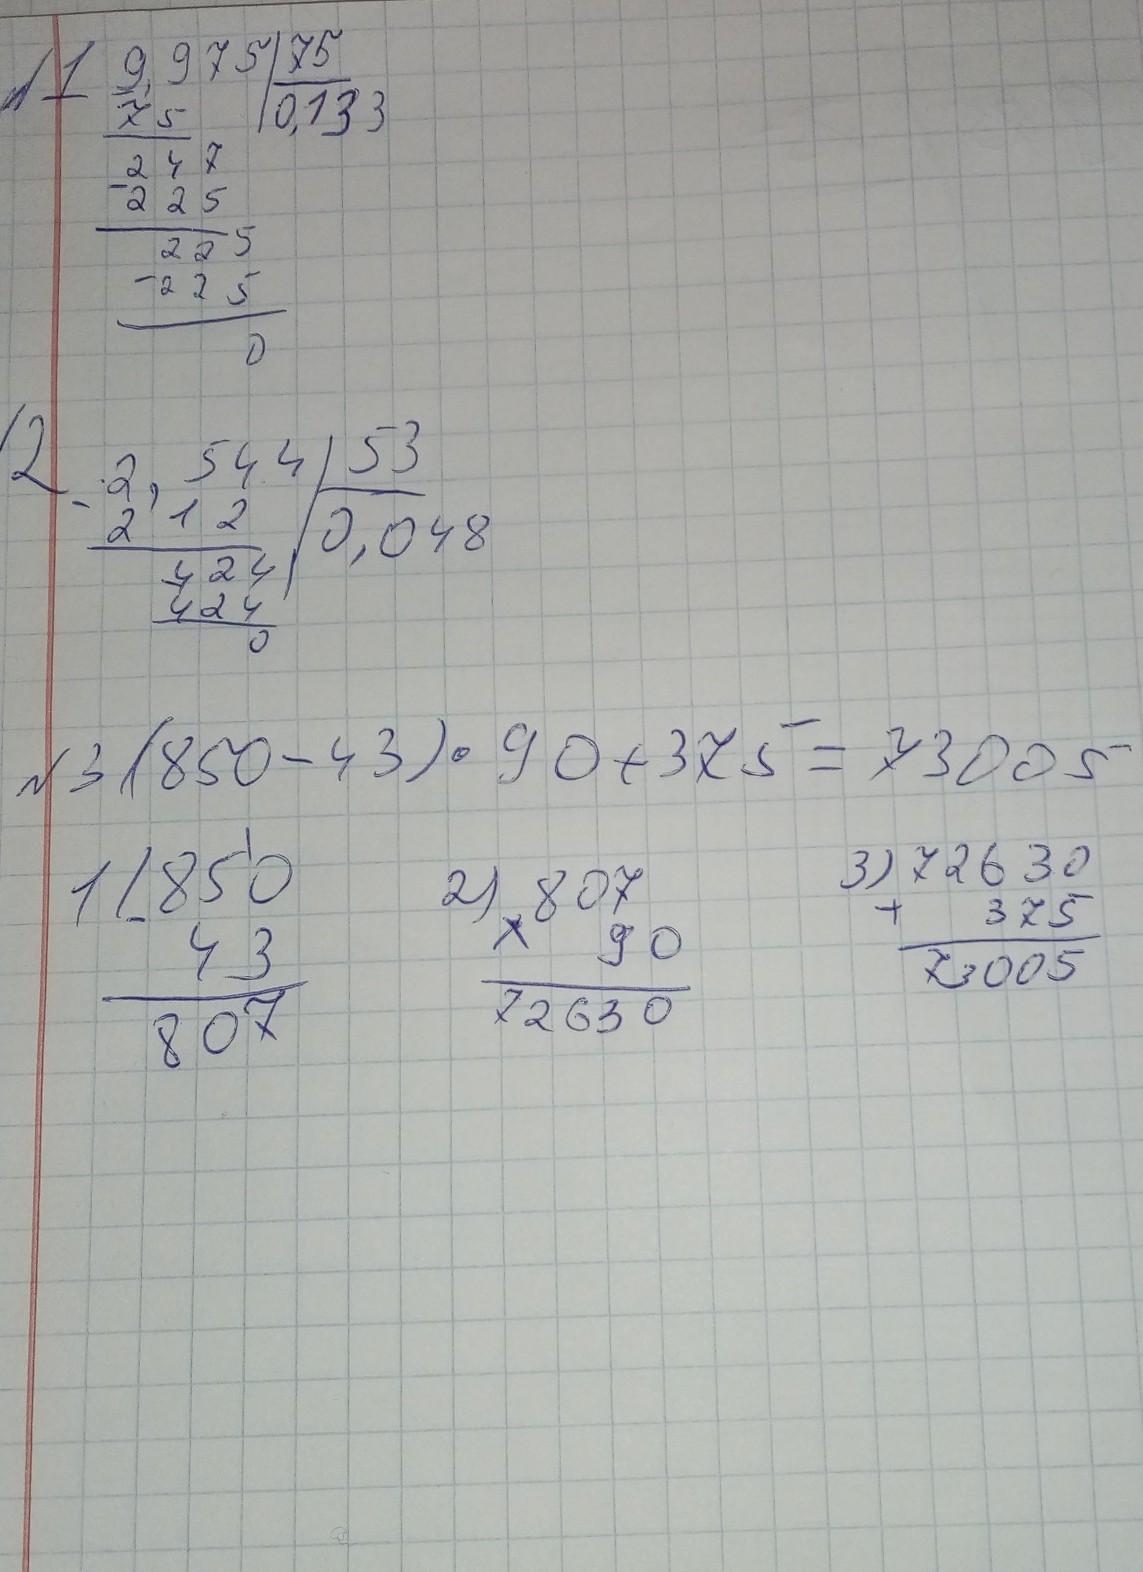 №1 9,975 | 75
75 | 0,133
247
- 225
225
- 225
0
№2 - 2,544 | 53
212 | 0,048
424
424
0
№3 (850-43)·90+375=73005
1) - 850
43
807
2) × 807
90
72630
3) + 72630
375
73005